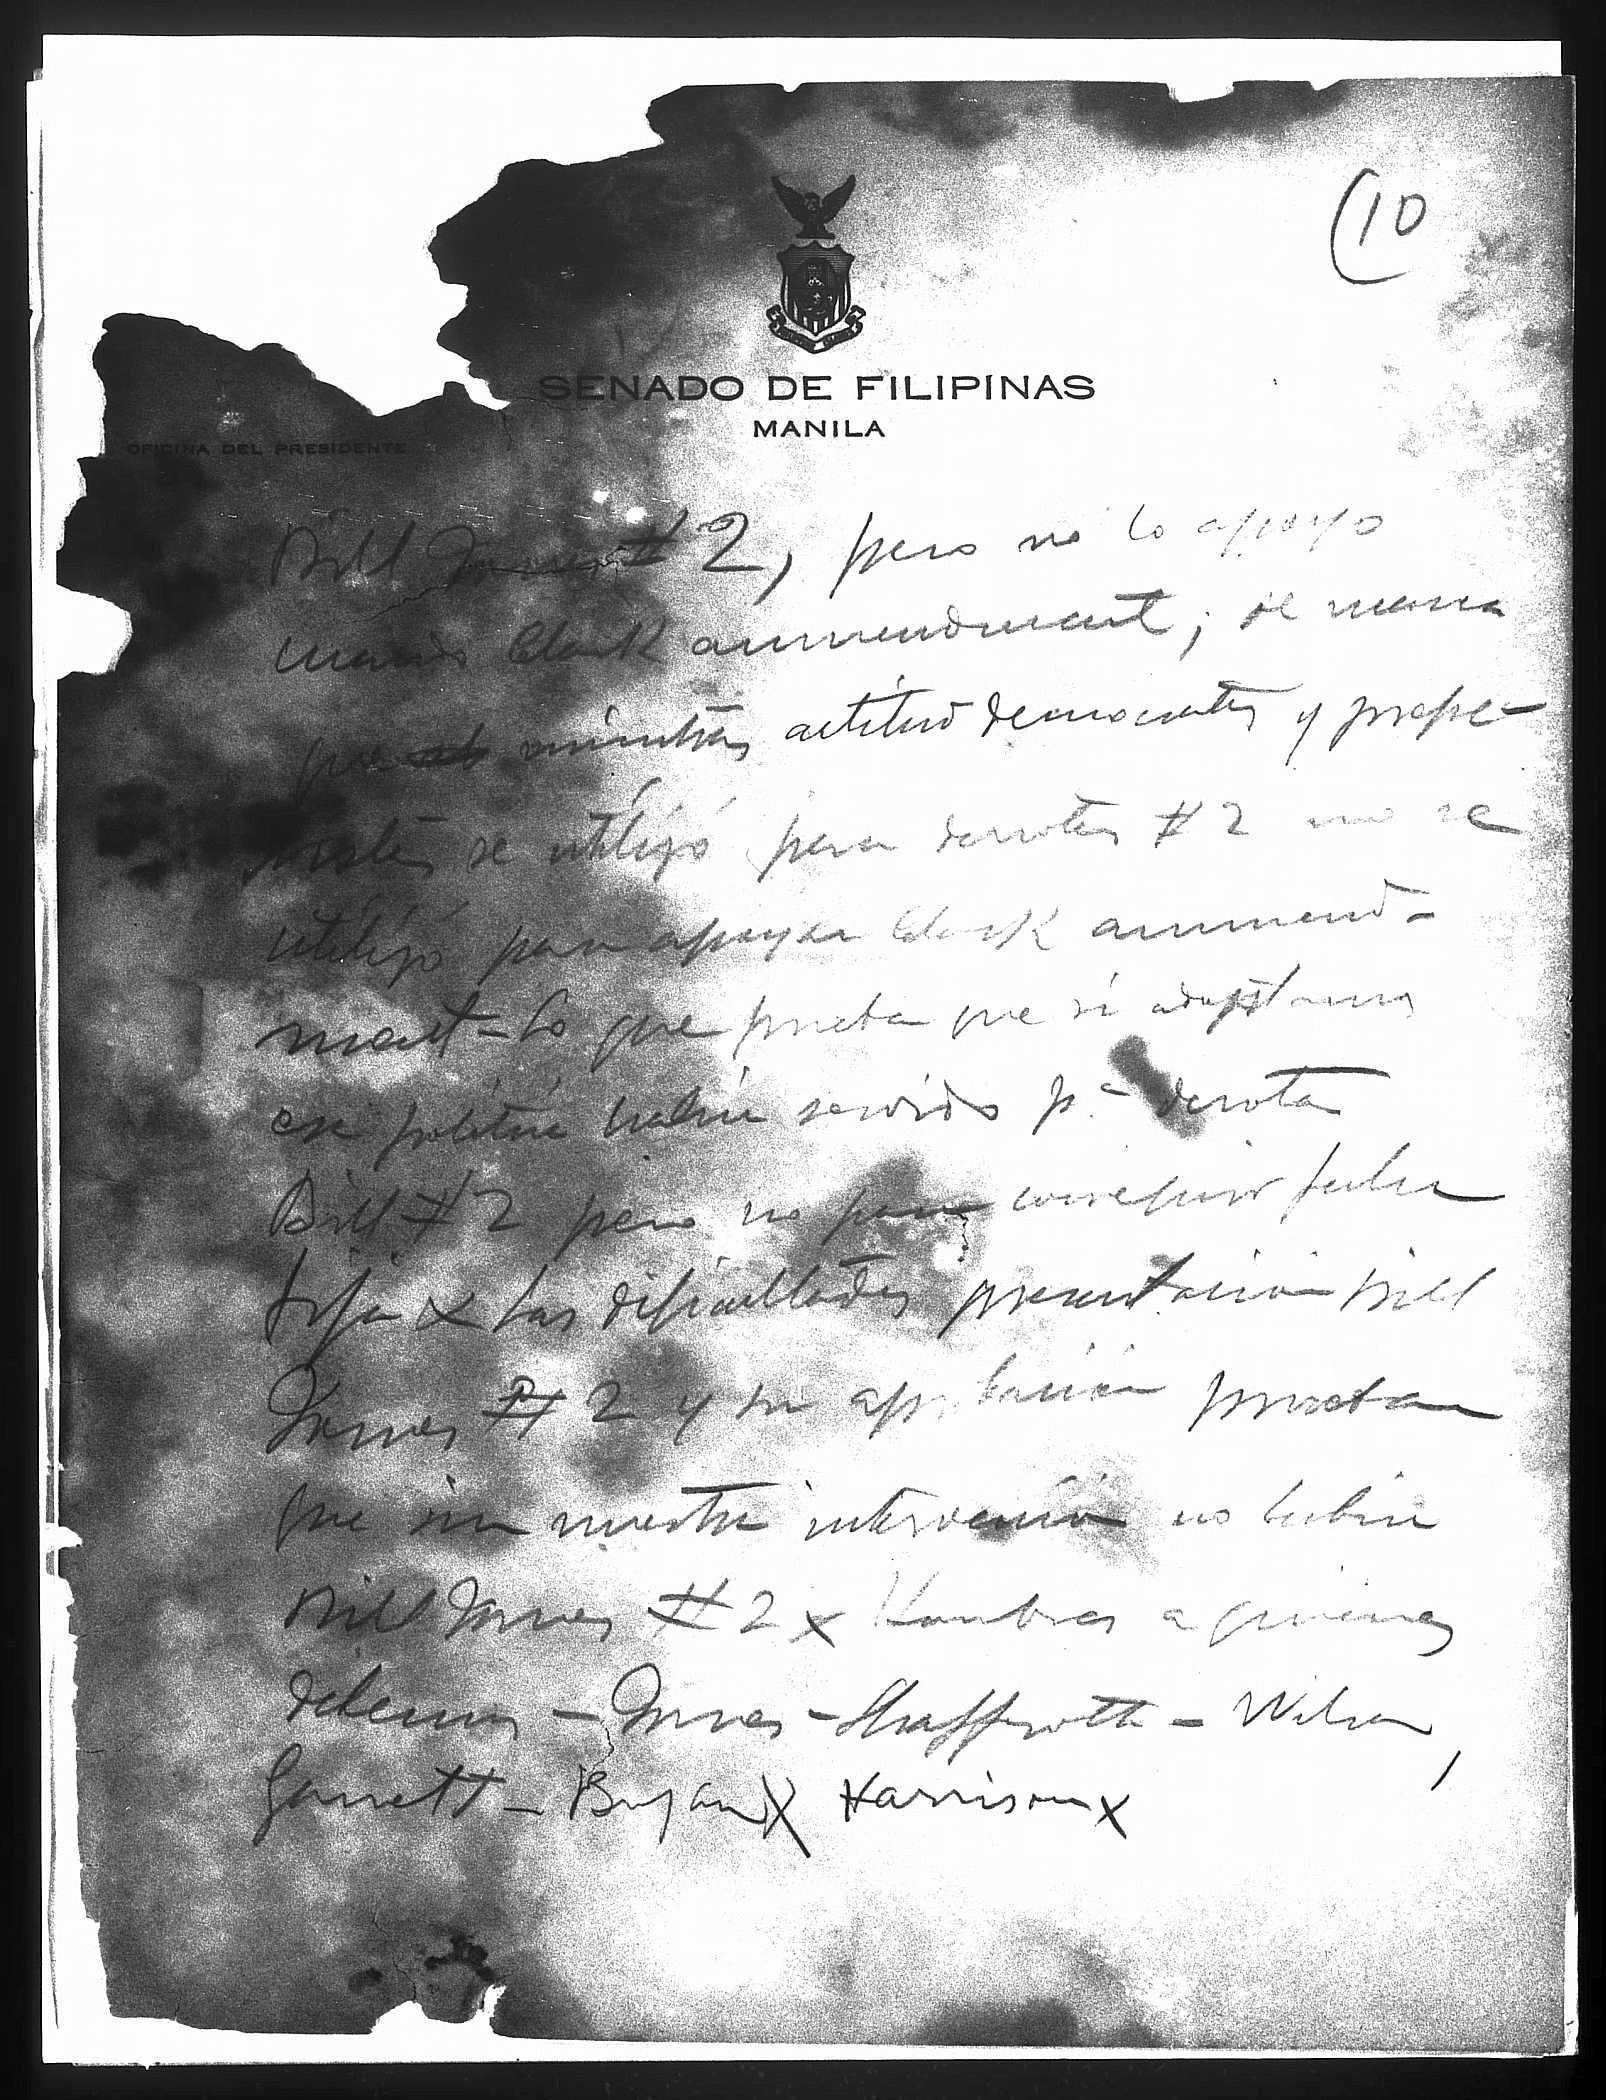 (10
SENADO DE FILIPINAS
MANILA
OFICINA DEL PRESIDENTE
Bill Jones # 2, pero no lo apoyo
cuando Clark ammendment; de manera
que mientras actitud democrata y
se utilizó para derrotar # 2 no se
utilizó para apoyar Clark ammend-
ment - Lo que prueba que si adoptamos
esa politica habria servido pª derrotar
Bill # 2 pero no para conseguir fecha
fija x Las dificultades presentacion bill
Jones # 2 y su aprobación prueban
que sin nuestra intervencion no habria
bill Jones # 2 x Hombres a quienes
debemos - Jones - Shaffroth - Wilson,
Garrett - Bryan x Harrison x